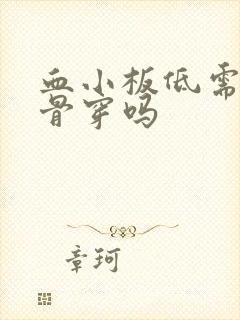 血小板低需
骨穿吗
章珂